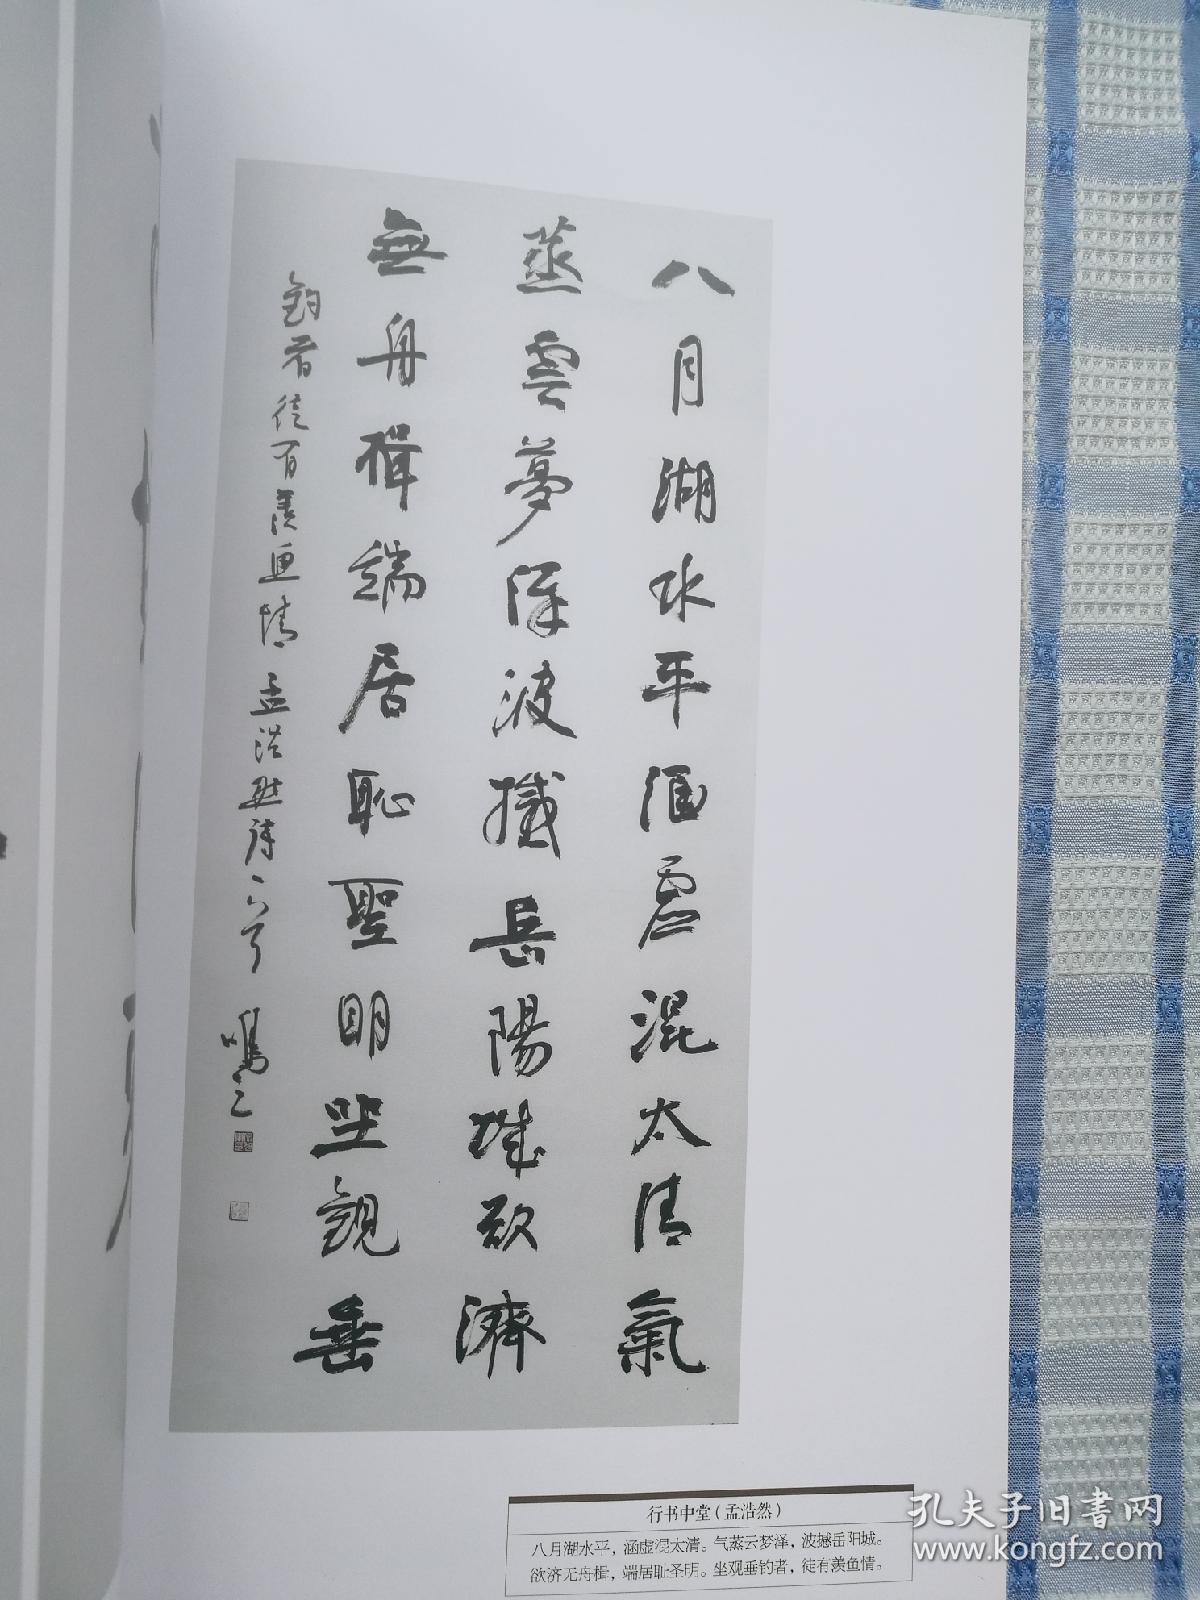 八月湖水平涵虛混太清氣
蒸雲夢澤波撼岳陽城欲濟
無舟楫端居恥聖明坐觀垂
釣者徒有羨魚情 孟浩然詩一首 鳴之
行书中堂(孟浩然)
八月湖水平，涵虚混太清。气蒸云梦泽，波撼岳阳城。
欲济无舟楫，端居耻圣明。坐观垂钓者，徒有羡鱼情。
孔夫子旧书网
www.kongfz.com